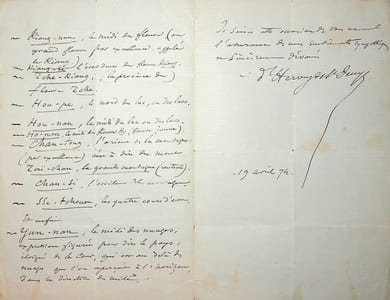 — Kiang-nan, le midi du fleuve (ou
grand fleuve par excellence appelé
le Kiang)
— Kiang-si, l'occident du fleuve Kiang.
— Tche-Kiang, (la province du
fleuve Tche.
— Hou-pe, le nord du lac, ou des lacs.
— Hou-nan, le midi du lac ou des lacs.
— Ho-nan, le midi du fleuve (fleuve jaune).
— Chan-tong, l'orient de la montagne
(par excellence) c'est à dire des monts
Taï-chan, la grande montagne
— Chan-si, l'occident de la montagne
— Sse-tchouen, les quatre cours d'eau.
Enfin
— Yun-nan, le midi des nuages,
expression figurée pour dire le pays,
éloigné de la Cour, qui est au delà des
nuages que l'on aperçoit à l'horizon
dans la direction du midi.
Je saisis cette occasion de vous
l'assurance de mes sentiments sympathiques
et sincèrement dévoués
D'Hervey de St Denys
19 avril 74.